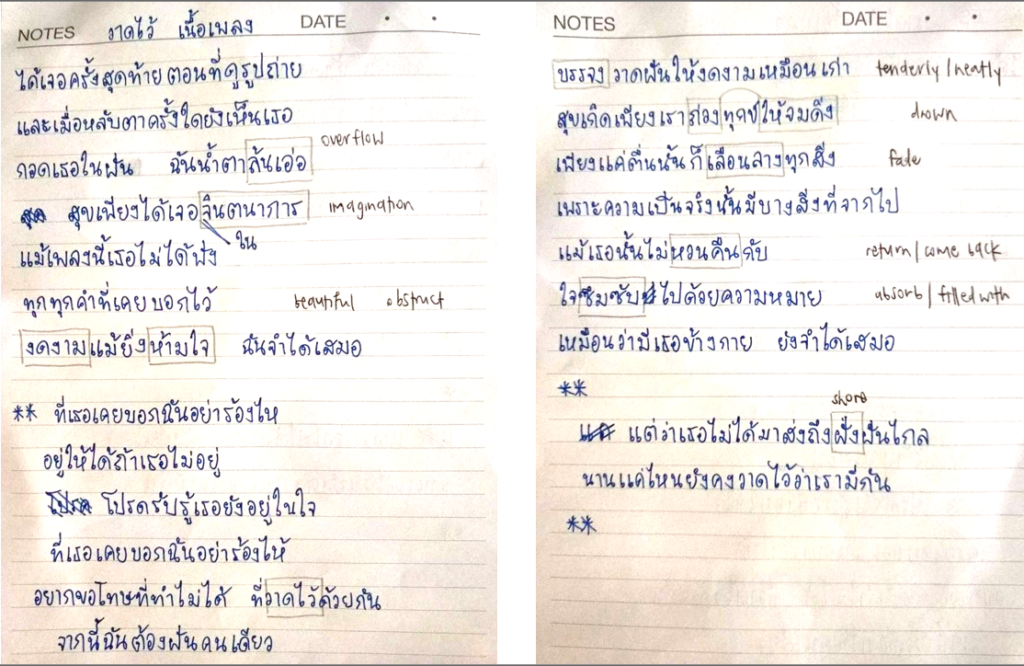 NOTES วาดไว้ เนื้อเพลง DATE
ได้เจอครั้งสุดท้ายตอนที่ดูรูปถ่าย
และเมื่อหลับตาครั้งใดยังเห็นเธอ
overflow
กอดเธอในฝัน ฉันน้ำตาล้นเอ่อ
สุขเพียงได้เจอจินตนาการ imagination
ใน
แม้เพลงนี้เธอไม่ได้ฟัง
ทุกทุกคำที่เคยบอกไว้ beautiful obstruct
งดงามแม้ยิ่งห้ามใจ ฉันจำได้เสมอ
** ที่เธอเคยบอกฉันอย่าร้องไห
อยู่ให้ได้ถ้าเธอไม่อยู่
โปรดรับรู้เธอยังอยู่ในใจ
ที่เธอเคยบอกฉันอย่าร้องไห้
อยากขอโทษที่ทำไม่ได้ ที่วาดไว้ด้วยกัน
จากนี้ฉันต้องฝันคนเดียว
NOTES DATE
บรรจงวาดฝันให้งดงามเหมือนเก่า tenderly/neatly
สุขเกิดเพียงเราถ่วงทุกข์ให้จมดิ่ง drown
เพียงแค่ตื่นนั้นก็เลือนลางทุกสิ่ง fade
เพราะความเป็นจริงนั้นมีบางสิ่งที่จากไป
แม้เธอนั้นไม่หวนคืนกับ return/come back
ใจซึมซับไปด้วยความหมาย absorb/filled with
เหมือนว่ามีเธอข้างกาย ยังจำได้เสมอ
**
shore
แต่ว่าเธอไม่ได้มาส่งถึงฝั่งฝันไกล
นานแค่ไหนยังคงวาดไว้ว่าเรามีกัน
**